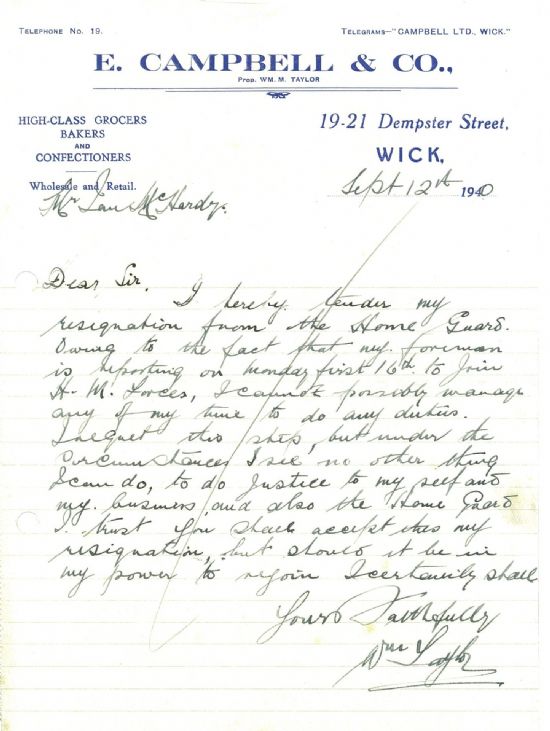 TELEPHONE No. 19.
TELEGRAMS—"CAMPBELL LTD., WICK."
E. CAMPBELL & CO.,
PROP. WM. M. TAYLOR
HIGH-CLASS GROCERS
BAKERS
AND
CONFECTIONERS
Wholesale and Retail.
19-21 Dempster Street,
WICK,
Sept 12th 1940
Mr Ian McHardy.
Dear Sir,
I hereby tender my
resignation from the Home Guard.
Owing to the fact that my foreman
is reporting on monday first 16th to Join
H. M. Forces, I cannot possibly manage
any of my time to do any duties.
I regret this step, but under the
Circumstances I see no other thing
I can do, to do Justice to my self and
my business, and also the Home Guard
I trust you shall accept this my
resignation, but should it be in
my power to rejoin I certainly shall
Yours Faithfully
Wm Taylor